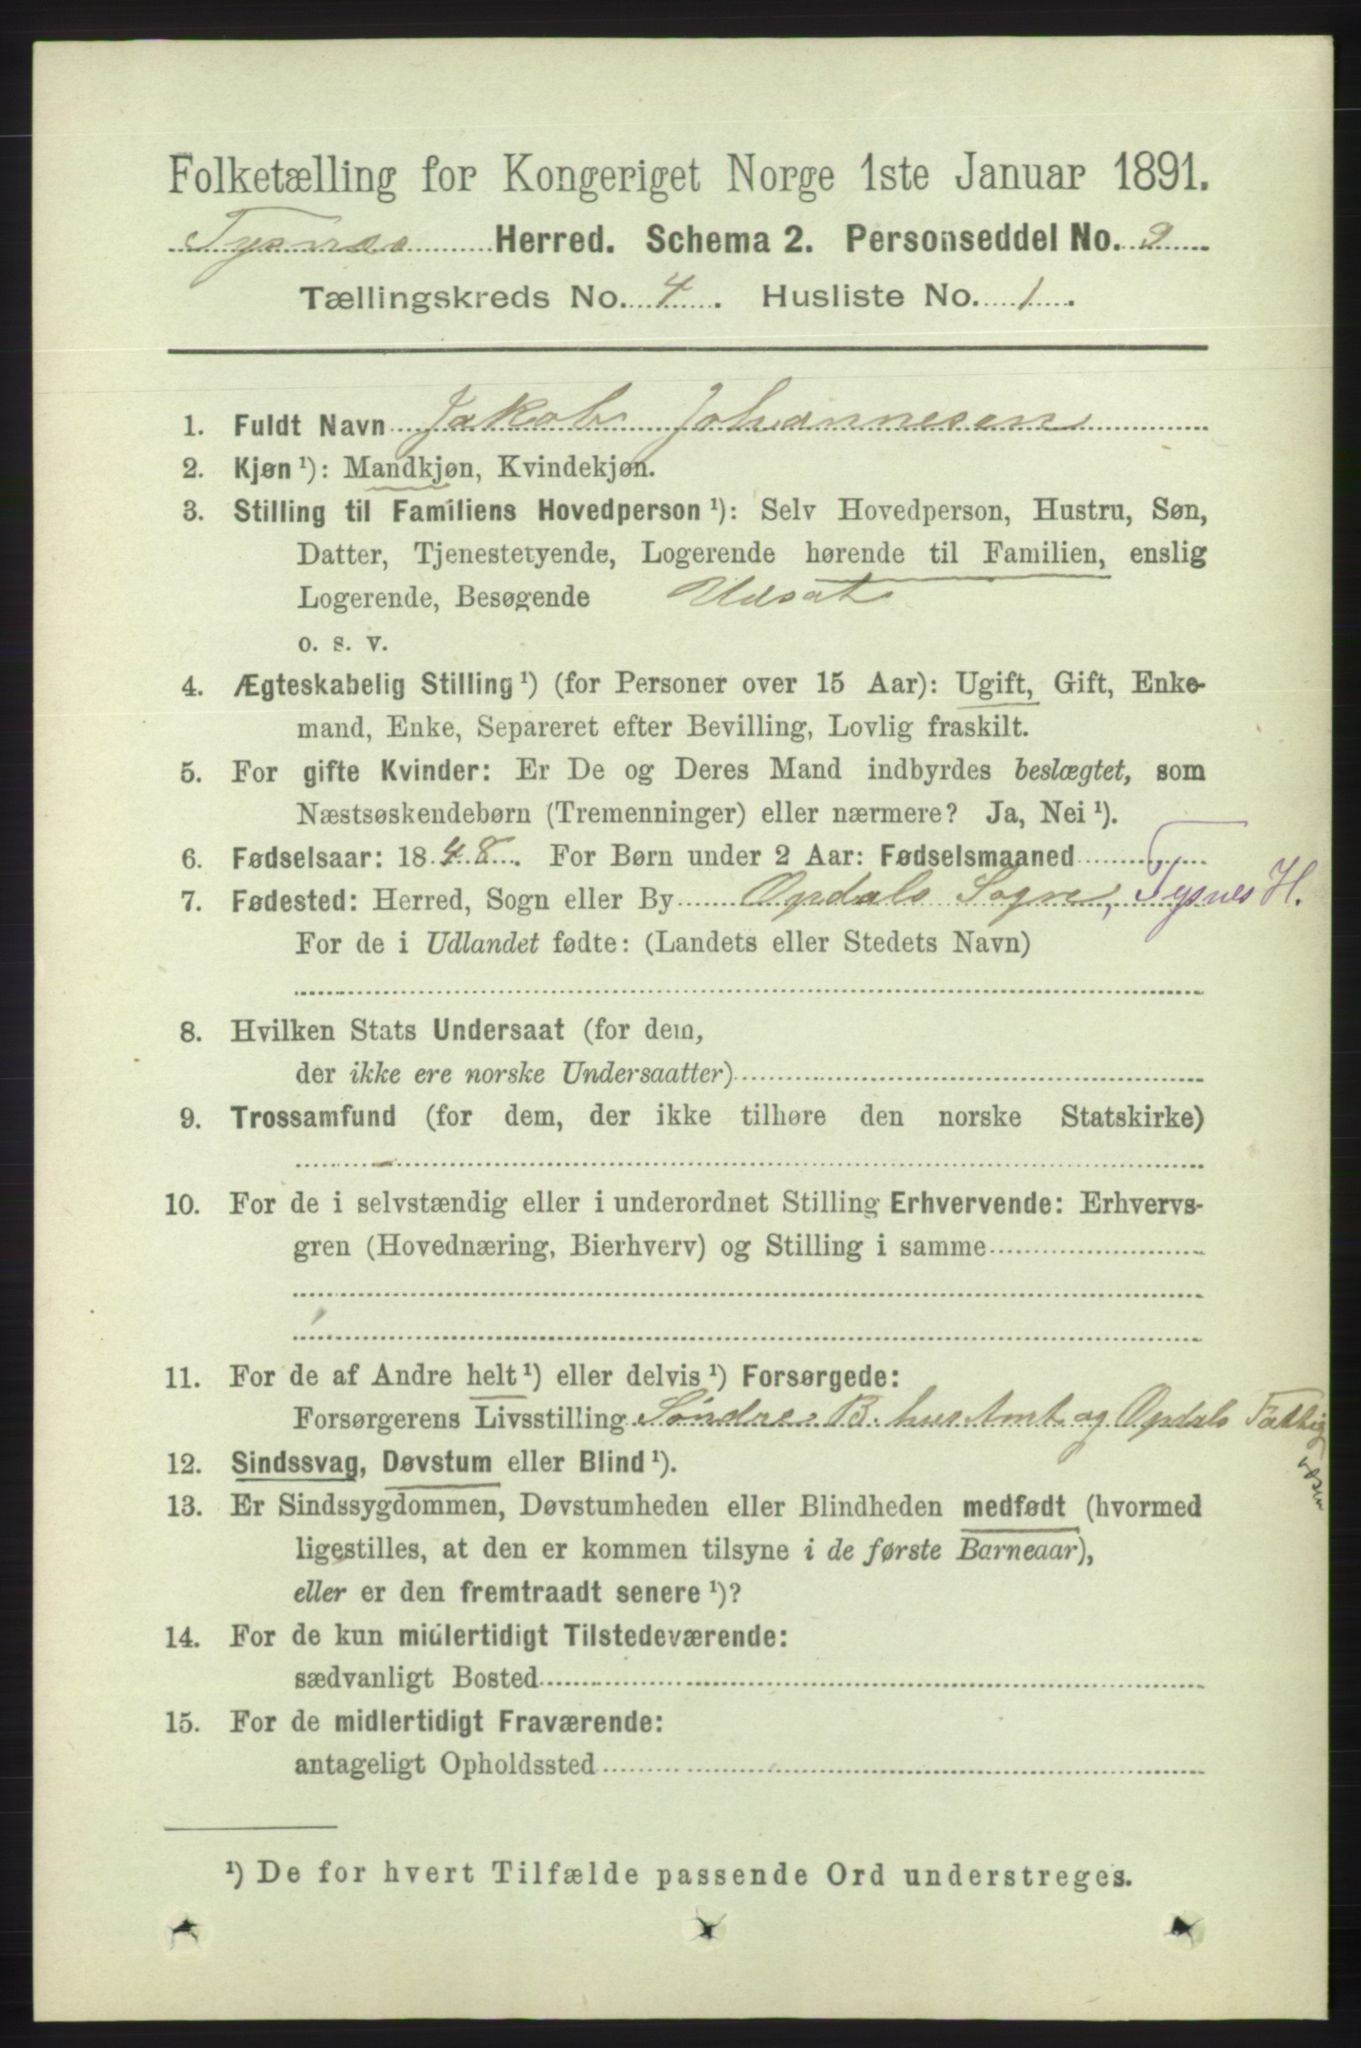 Folketælling for Kongeriget Norge 1ste Januar 1891.
Tysnæs Herred. Schema 2. Personseddel No. 9
Tællingskreds No. 4. Husliste No. 1.
1. Fuldt Navn Jakob Johannesen
2. Kjøn ¹): Mandkjøn, Kvindekjøn.
3. Stilling til Familiens Hovedperson ¹): Selv Hovedperson, Hustru, Søn,
Datter, Tjenestetyende, Logerende hørende til Familien, enslig
Logerende, Besøgende Udsat
o. s. v.
4. Ægteskabelig Stilling ¹) (for Personer over 15 Aar): Ugift, Gift, Enke-
mand, Enke, Separeret efter Bevilling, Lovlig fraskilt.
5. For gifte Kvinder: Er De og Deres Mand indbyrdes beslægtet, som
Næstsøskendebørn (Tremenninger) eller nærmere? Ja, Nei ¹).
6. Fødselsaar: 1848. For Børn under 2 Aar: Fødselsmaaned
7. Fødested: Herred, Sogn eller By Opdals Sogn, Tysnes H.
For de i Udlandet fødte: (Landets eller Stedets Navn)
8. Hvilken Stats Undersaat (for dem,
der ikke ere norske Undersaatter)
9. Trossamfund (for dem, der ikke tilhøre den norske Statskirke)
10. For de i selvstændig eller i underordnet Stilling Erhvervende: Erhvervs-
gren (Hovednæring, Bierhverv) og Stilling i samme
11. For de af Andre helt ¹) eller delvis ¹) Forsørgede:
Forsørgerens Livsstilling Søndre B. hus Amt og Opdals Fattig
12. Sindssvag, Døvstum eller Blind ¹).
13. Er Sindssygdommen, Døvstumheden eller Blindheden medfødt (hvormed
ligestilles, at den er kommen tilsyne i de første Barneaar),
eller er den fremtraadt senere ¹)?
14. For de kun midlertidigt Tilstedeværende:
sædvanligt Bosted
15. For de midlertidigt Fraværende:
antageligt Opholdssted
¹) De for hvert Tilfælde passende Ord understreges.